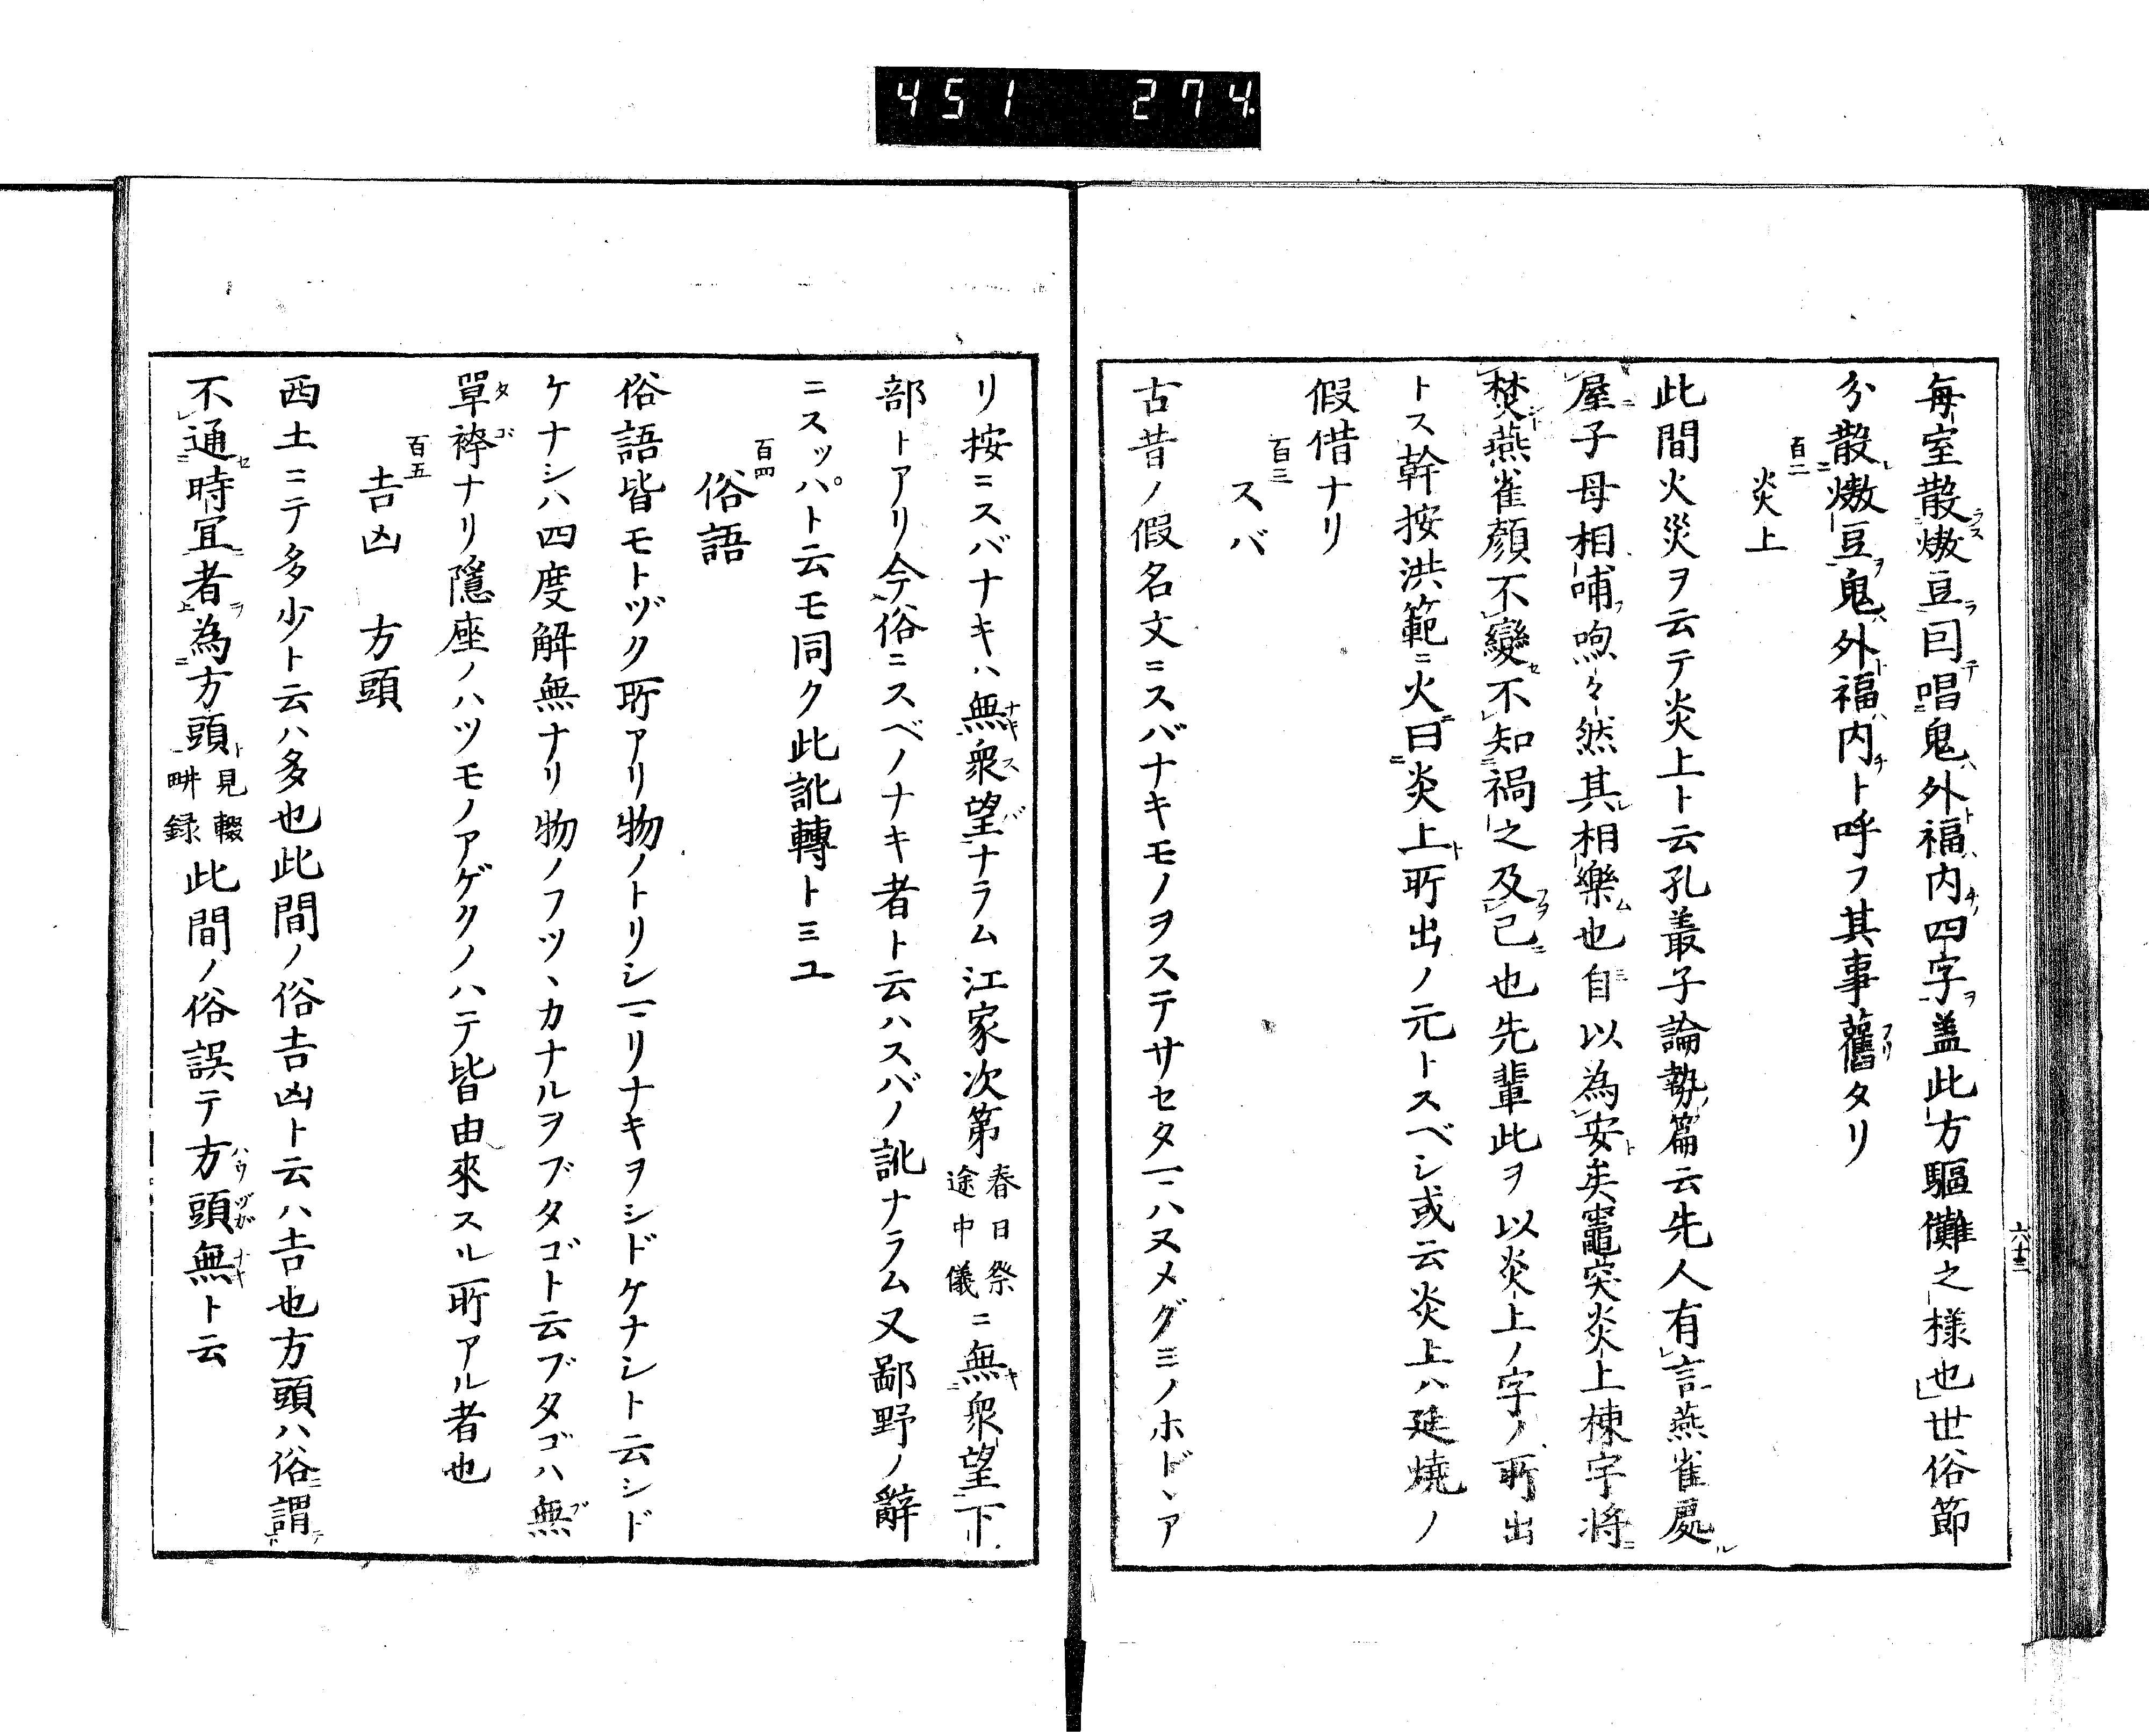 451 274
六十三
毎室散熬豆囘唱鬼外福内四字盖此方驅儺之様也世俗節
分散熬豆鬼外福内ト呼フ其事舊タリ
百二
炎上
此間火災ヲ云テ炎上ト云孔叢子論勢篇云先人有言燕雀處
屋子母相哺喣々然其相樂也自以為安矣竈突炎上棟宇将
焚燕雀顔不變不知禍之及己也先輩此ヲ以炎上ノ字ノ所出
トス幹按洪範ニ火曰炎上所出ノ元トスベシ或云炎上ハ延焼ノ
假借ナリ
百三
スバ
古昔ノ假名文ニスバナキモノヲステサセタヿハヌメグミノホドヽア
リ按ニスバナキハ無衆望ナラム江家次第春日祭途中儀ニ無衆望下
部トアリ今俗ニスベノナキ者ト云ハスバノ訛ナラム又鄙野ノ辭
ニスッパト云モ同ク此訛轉トミユ
百四
俗語
俗語皆モトヅク所アリ物ノトリシヿリナキヲシドケナシト云シド
ケナシハ四度解無ナリ物ノフツヽカナルヲブタゴト云ブタゴハ無
單袴ナリ隱座ノハツモノアゲクノハテ皆由來スル所アル者也
百五
吉凶 方頭
西土ニテ多少ト云ハ多也此間ノ俗吉凶ト云ハ吉也方頭ハ俗謂
不通時宜者為方頭見輟畊録此間ノ俗誤テ方頭無ト云